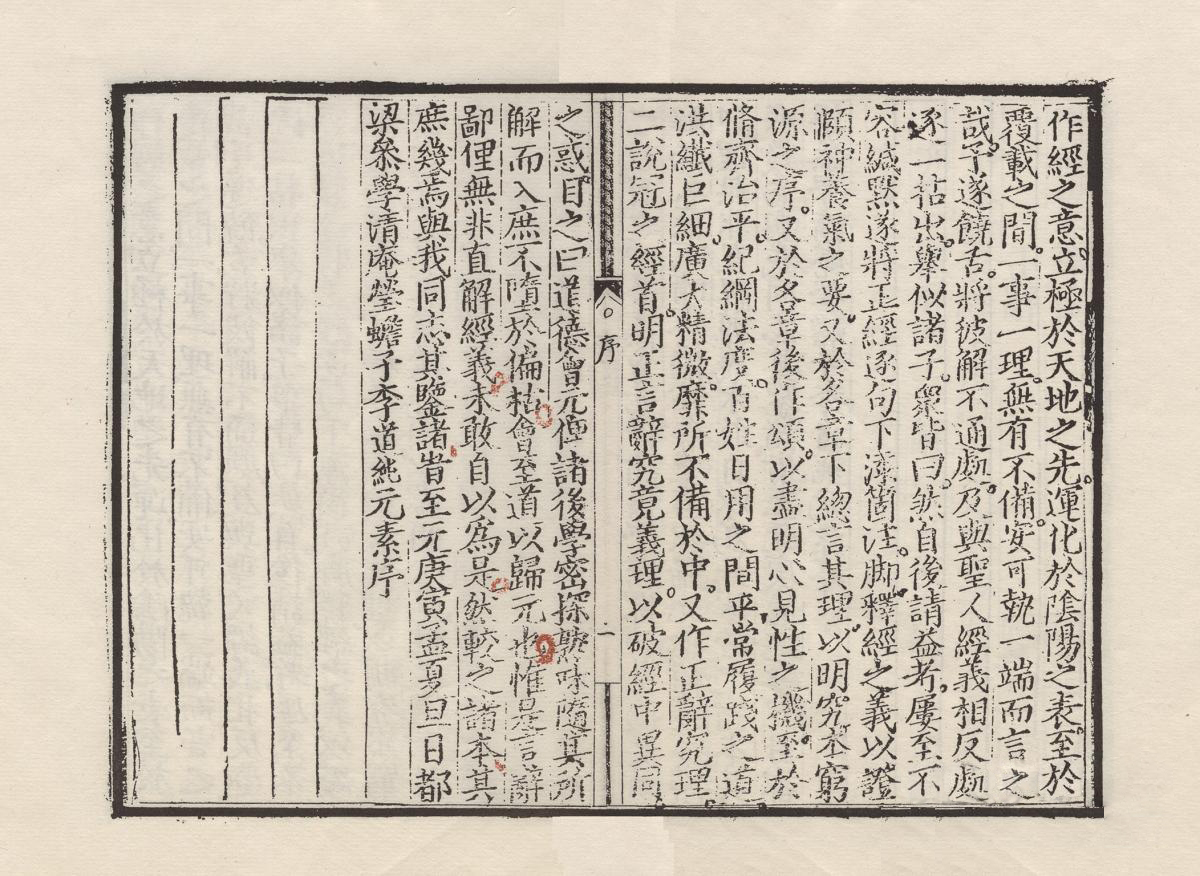 作經之意立極於天地之先運化於陰陽之表至於
覆載之間一事一理無有不備安可執一端而言之
哉予遂饒舌將彼解不通處及與聖人經義相反處
逐一拈出舉似諸子衆皆曰然自後請益者屢至不
容緘默遂將正經逐句下添箇注脚釋經之義以證
頤神養氣之要又於各章下總言其理以明究本窮
源之序又於各章後作頌以盡明心見性之機至於
脩齊治平紀綱法度百姓日用之間平常履踐之道
洪纖巨細廣大精微靡所不備於中又作正辭究理
二說冠之經首明正言辭究竟義理以破經中異同
序
一
之惑目之曰道德會元俾諸後學密探熟味隨其所
解而入庶不墮於偏枯會至道以歸元也惟是言辭
鄙俚無非直解經義未敢自以為是然較之諸本其
庶幾焉與我同志其鑒諸旹至元庚寅孟夏旦日都
梁參學清庵瑩蟾子李道純元素序